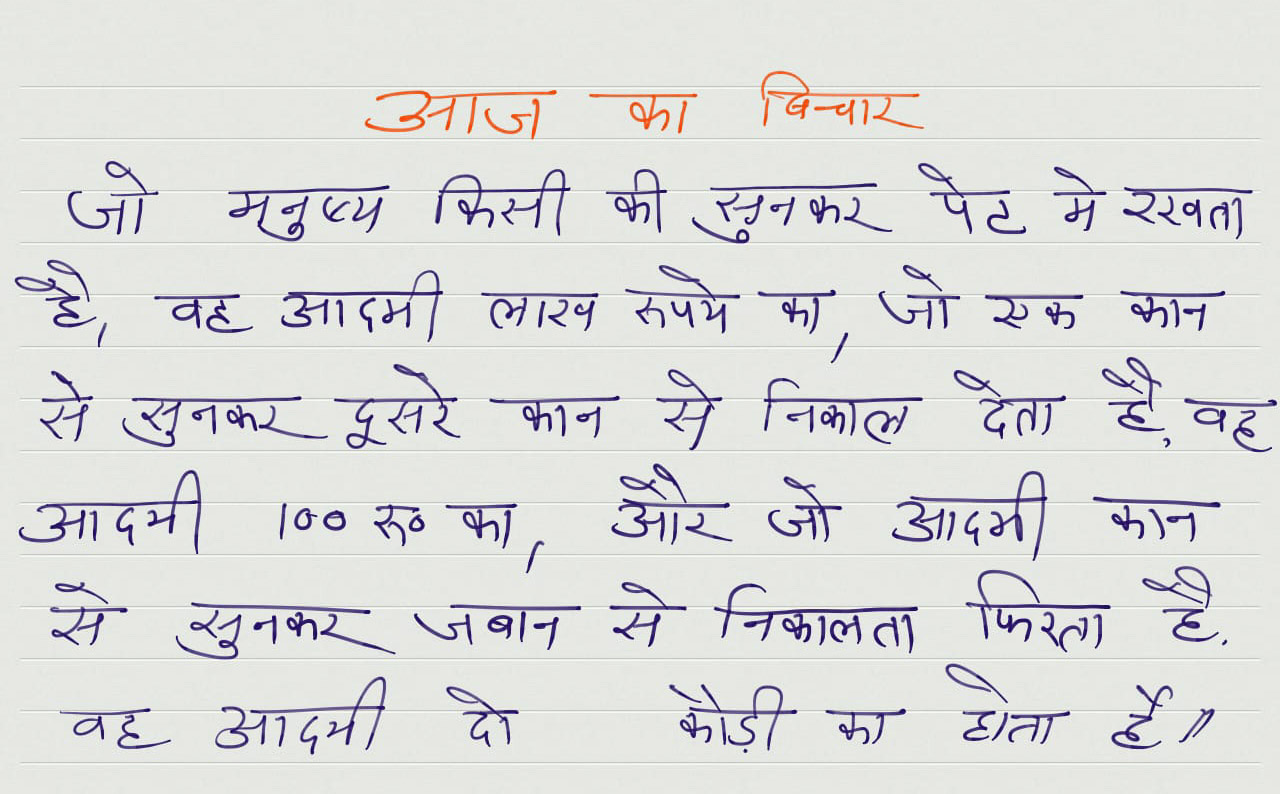 आज का बिचार
जो मनुष्य किसी की सुनकर पेट मे रखता
है, वह आदमी लाख रुपये का, जो एक कान
से सुनकर दूसरे कान से निकाल देता है, वह
आदमी १०० रु० का, और जो आदमी कान
से सुनकर जबान से निकालता फिरता है.
वह आदमी दो कौड़ी का होता है॥